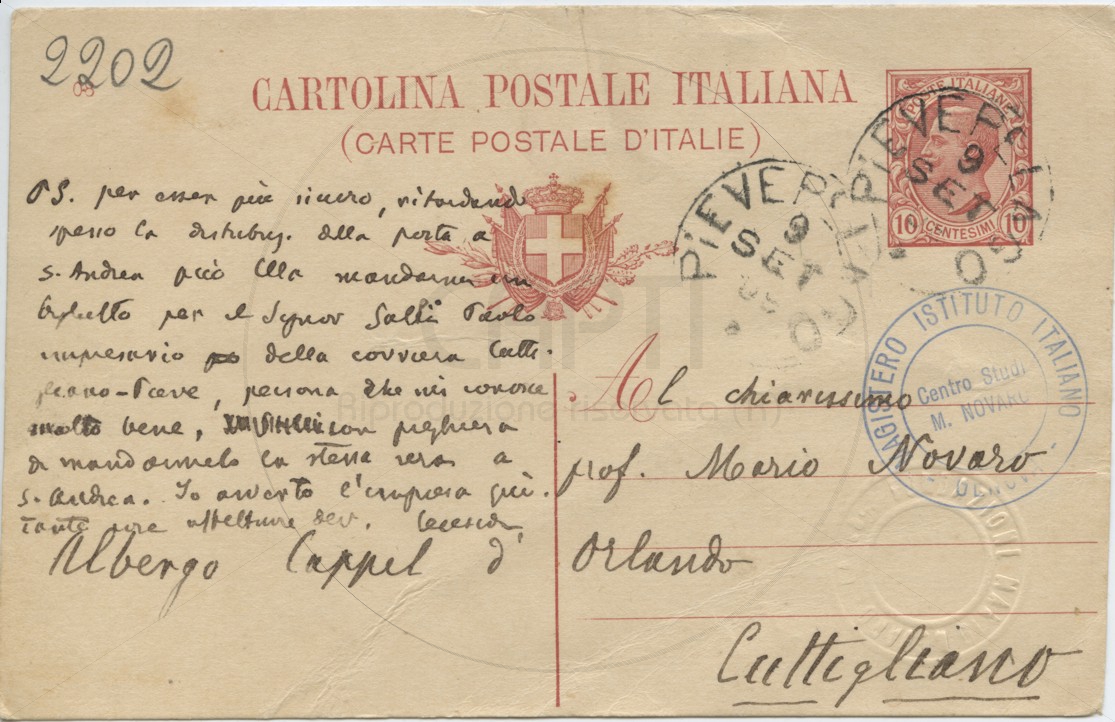 2202
CARTOLINA POSTALE ITALIANA
(CARTE POSTALE D'ITALIE)
POSTE ITALIANE
10 CENTESIMI 10
PIEVEPELAGO
9
SET
05
PIEVEPELAGO
9
SET
05
MAGISTERO ISTITUTO ITALIANO
Centro Studi
M. NOVARO
GENOVA
PS. per esser più sicuro, ritardando
spesso la distribuz. della posta a
S. Andrea può Ella mandarmi un
biglietto per il Signor Galli Paolo
impresario della corriera Cuti-
gliano-Pieve, persona che mi conosce
molto bene, con preghiera
di mandarmelo la stessa sera a
S. Andrea. Io avverto l'impresa
Al chiarissimo
prof. Mario Novaro
Albergo Cappel d'Orlando
Cuttigliano
CAPTI
Riproduzione riservata (R)